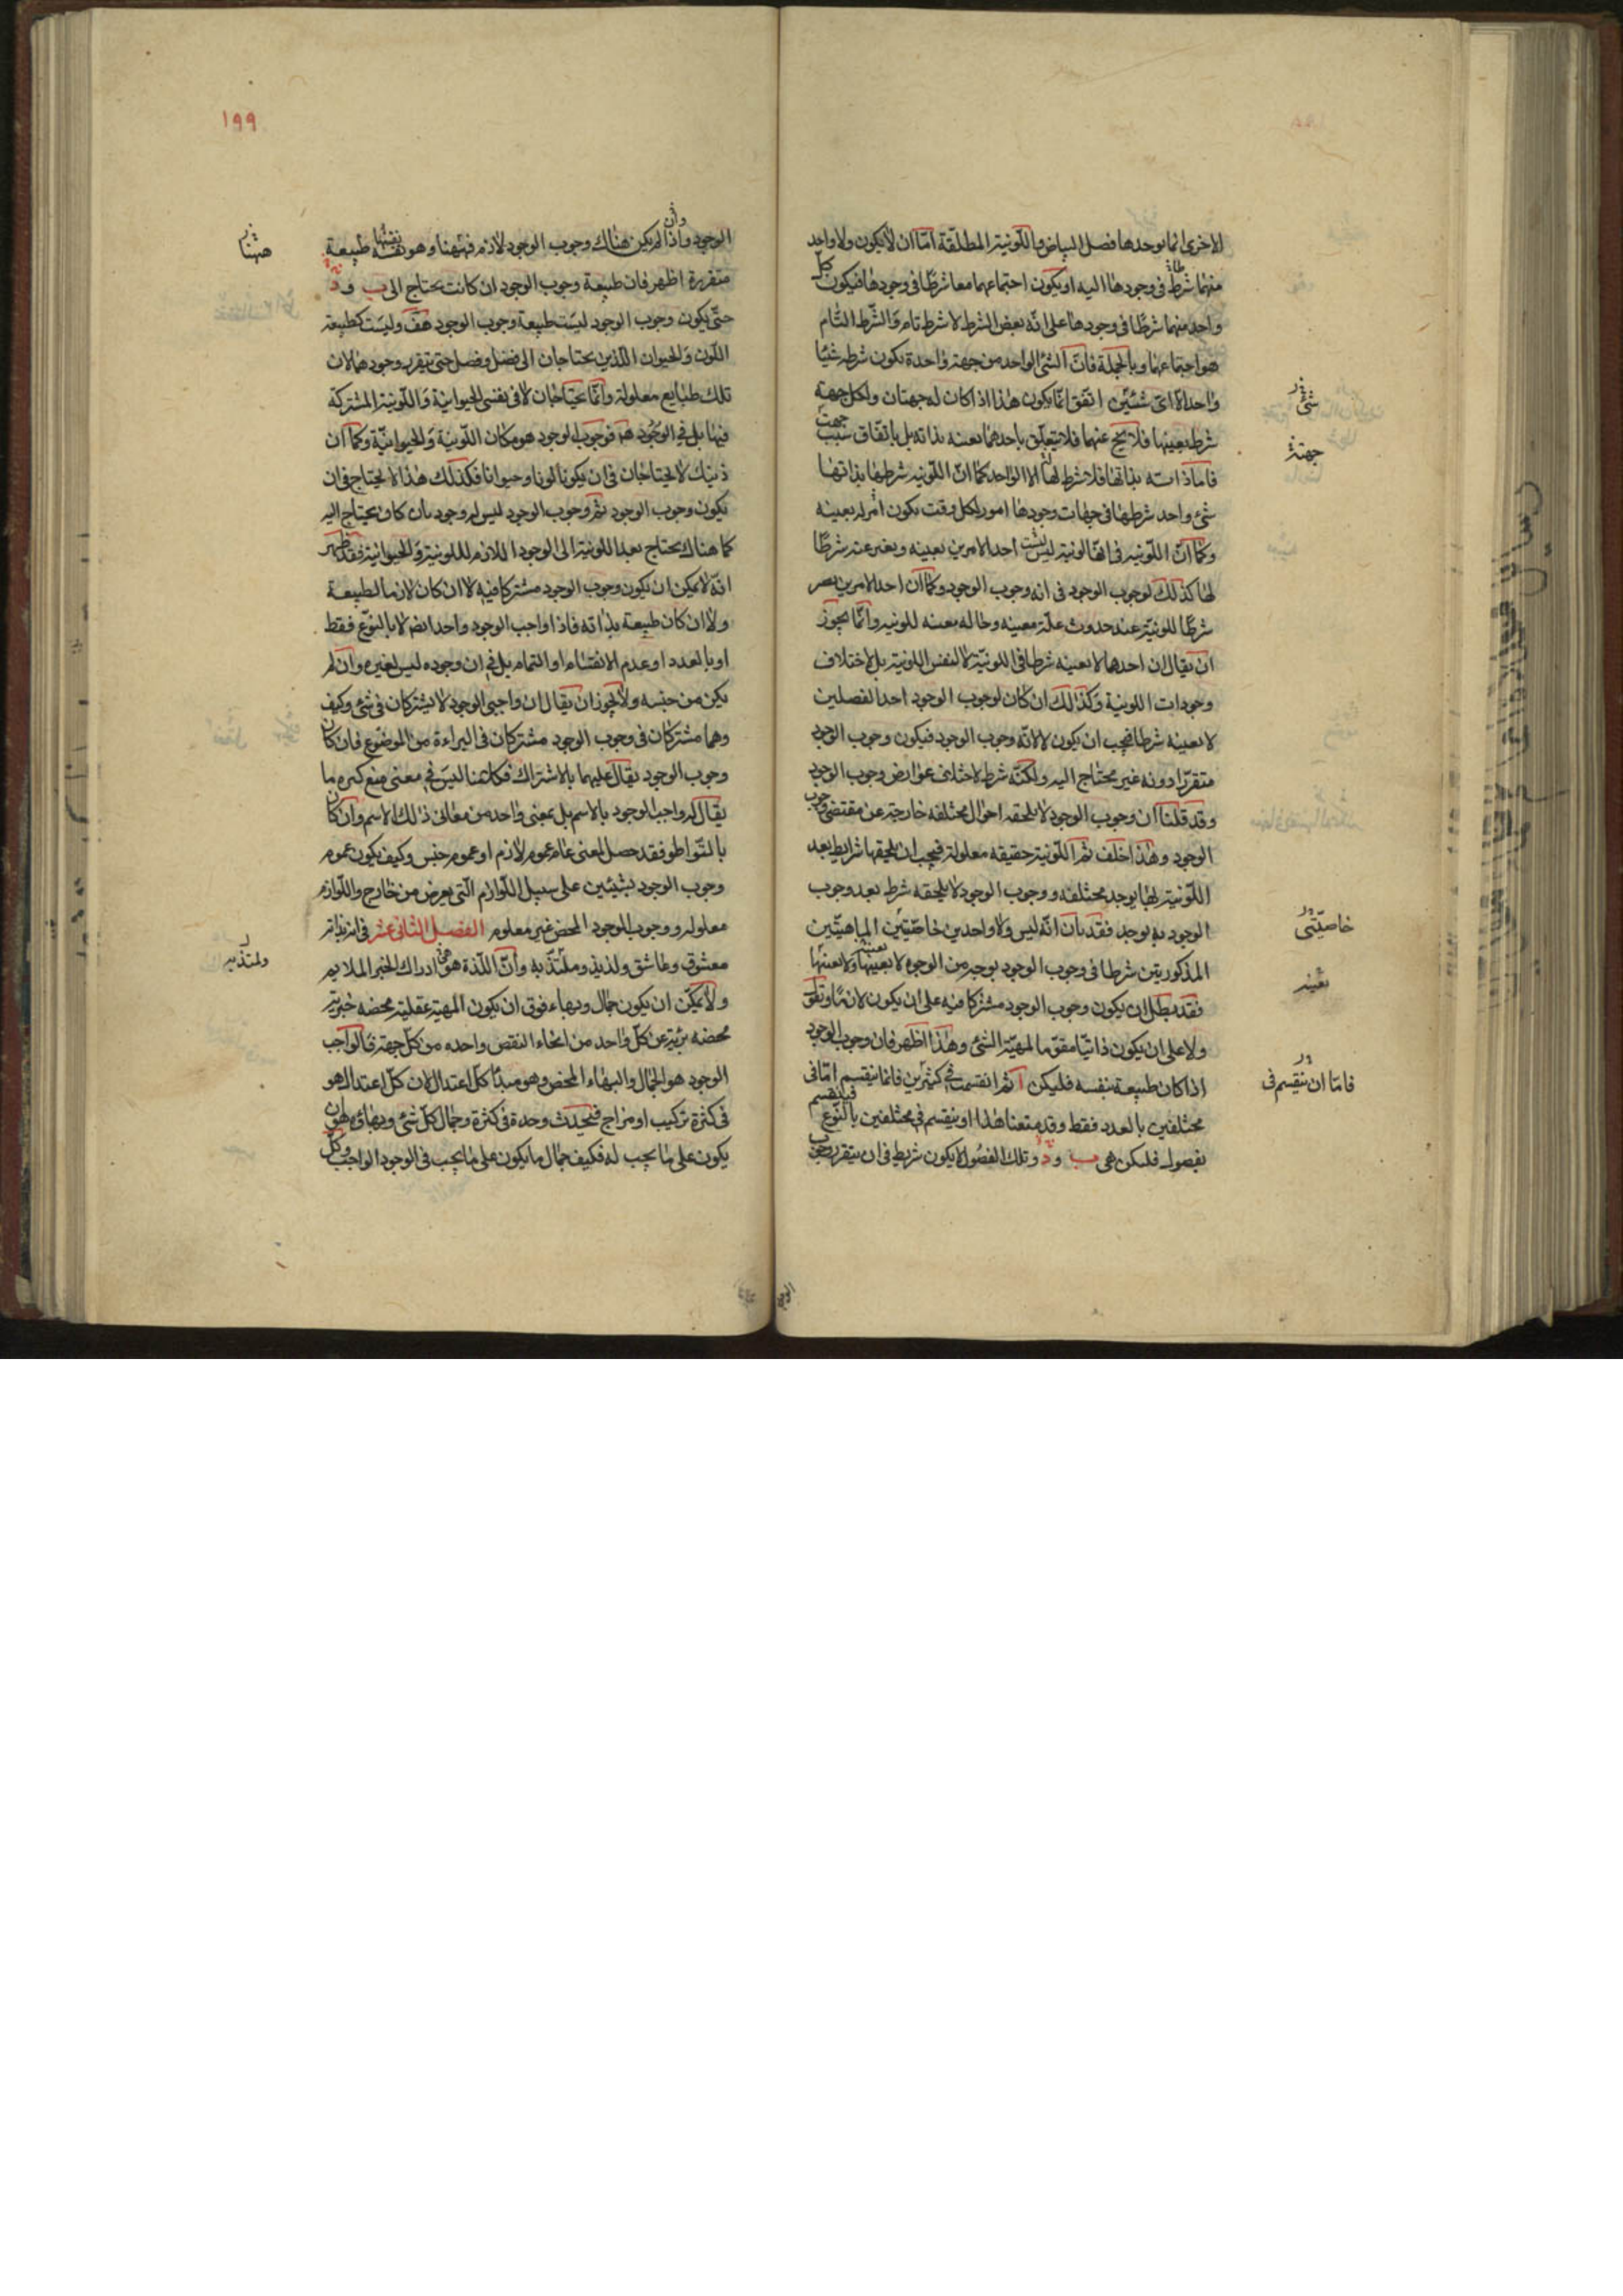 الاخرى انما يوجدها فصل البياض والّلونية المطلقة امّا ان لا يكون ولا واحد
منهما شرطا فى وجودها اليه او يكون اجتماعهما معا شرطا فى وجودها فيكون كل
واحد منهما شرطا فى وجودها على انّه بعض الشرط لا شرط تام والشرط التام
هو اجتماعهما وبالجملة فانّ الشئ الواحد من جهة واحدة يكون شرطه شيئا
واحدا لا اى شيئين اتفق انّما يكون هذا اذا كان له جهتان ولكل جهة
شرط بعينها فلا يخ عنهما فلا يتعلّق باحدهما بعينه بذاته بل باتّفاق سبب
فاما ذاته بذاتها فلا شرط لها الا الواحد كما انّ اللّونيه شرطها بذاتها
شئ واحد شرطها فى جهات وجودها امور لكل وقت يكون امر له بعينه
وكما انّ اللّونيه فى انّها لونية ليس احد الامرين بعينه وبغير عينه شرطا
لها كذلك لوجوب الوجود فى انه وجوب الوجود وكما ان احد الامرين يصير
شرطا للونيّة عند حدوث علّة معينه وحالة معينه للونيه وانّما يجوز
ان يقال ان احدهما لا بعينه شرطا فى اللونيّة لا لنفس اللونية بل لاختلاف
وجودات اللونية وكذلك ان كان لوجوب الوجود احد الفصلين
لا بعينه شرطا فيجب ان يكون لا لانّه وجوب الوجود فيكون وجوب الوجود
متقررا دونه غير محتاج اليه ولكنّه شرط لاختلاف عوارض وجوب الوجود
وقد قلنا ان وجوب الوجود لا يلحقه احوال مختلفه خارجة عن مقتضى وجوب
الوجود وهذا خلف ثم اللّونية حقيقه معلولة فيجب ان يلحقها شرايط بعد
اللّونية بها يوجد مختلفه ووجوب الوجود لا يلحقه شرط بعد وجوب
الوجود به يوجد فقد بان انّه ليس ولا واحد من خاصّيتين الماهيّتين
المذكورتين شرطا فى وجوب الوجود بوجه من الوجوه لا بعينها ولا بغير عينها
فقد بطل ان يكون وجوب الوجود مشتركا فيه على ان يكون لازما
ولا على ان يكون ذاتيّا مقوّما لمهيّة الشئ وهذا اظهر فان وجوب الوجود
اذا كان طبيعة بنفسه فليكن ا ثم انقسمت فى كثيرين فانما ينقسم امّا فى
مختلفين بالعدد فقط وقد منعنا هذا او ينقسم فى مختلفين بالنّوع فينقسم
بفصول فليكن هى ب و د وتلك الفصول لا يكون شريطة فى ان يتقرر وجوب
شئ
جهة
خاصيّتى
بغير
فامّا ان ينقسم فى
١٩٩
الوجود واذا لم يكن هناك وجوب الوجود لازم فههنا وهو نفسه طبيعة
متقررة اظهر فان طبيعة وجوب الوجود ان كانت يحتاج الى ب و د
حتّى يكون وجوب الوجود ليست طبيعة وجوب الوجود هف وليست كطبيعة
اللّون والحيوان اللّذين يحتاجان الى فصل وفصل حتى يتقرر وجودهما لان
تلك طبايع معلولة وانّما يحتاجان لا فى نفس الحيوانية والّلونية المشتركة
فيها بل فى الوجود ههنا فوجوب الوجود هو مكان اللّونية والحيوانيّة وكما ان
ذينك لا يحتاجان فى ان يكونا لونا وحيوانا فكذلك هذا لا يحتاج فى ان
يكون وجوب الوجود ثم وجوب الوجود ليس له وجود ثان كان يحتاج اليه
كما هناك يحتاج بعد اللونية الى الوجود اللازم للّلونية والحيوانية فقد ظهر
انّه لا يمكن ان يكون وجوب الوجود مشتركا فيه لا ان كان لازما لطبيعة
ولا ان كان طبيعة بذاته فاذا واجب الوجود واحد ايض لا بالنوع فقط
او بالعدد او عدم الانقسام او التمام بل فى ان وجوده ليس لغيره وان لم
يكن من جنسه ولا يجوز ان يقال ان واجبى الوجود لا يشتركان فى شئ وكيف
وهما مشتركان فى وجوب الوجود مشتركان فى البراءة من الموضوع فان كان
وجوب الوجود يقال عليهما بالاشتراك فكلامنا ليس فى معنى منع كثرة ما
يقال له واجب الوجود بالاسم بل بمعنى واحد من معانى ذلك الاسم وان كان
بالتّواطو فقد حصل لمعنى عام عموم لازم او عموم جنس وكيف يكون عموم
وجوب الوجود لشيئين على سبيل اللّوازم الّتى يعرض من خارج واللّوازم
معلوله ووجوب الوجود المحض غير معلوم الفصل الثانى عشر فى انه بذاته
معشوق وعاشق ولذيذ وملتذّ به وانّ اللّذة هى ادراك الخير الملايم
ولا يمكن ان يكون جمال وبهاء فوق ان يكون المهيّة عقلية محضه خيرية
محضه بريّة عن كلّ واحد من انحاء النقص واحده من كلّ جهة فالواجب
الوجود هو الجمال والبهاء المحض وهو مبدأ كلّ اعتدال لان كلّ اعتدال هو
فى كثرة تركيب او مزاج فيحدث وحدة فى كثرة وجمال كلّ شئ وبهاؤه هو ان
يكون على ما يجب له فكيف جمال ما يكون على ما يجب فى الوجود الواجب وكل
ههنا
وملتذ به